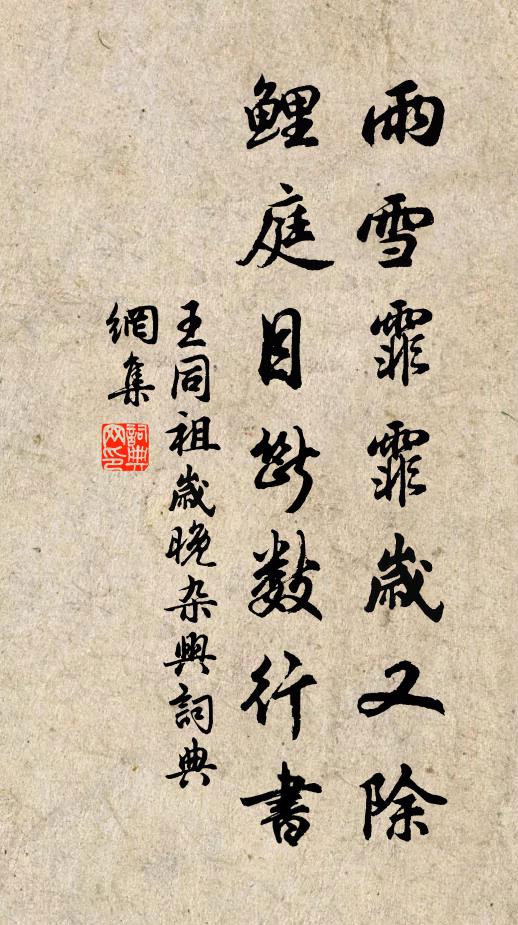 雨雪霏霏歲又除
鯉庭目斷數行書
王同祖歲晚杂興詞典
網集
詞典網印